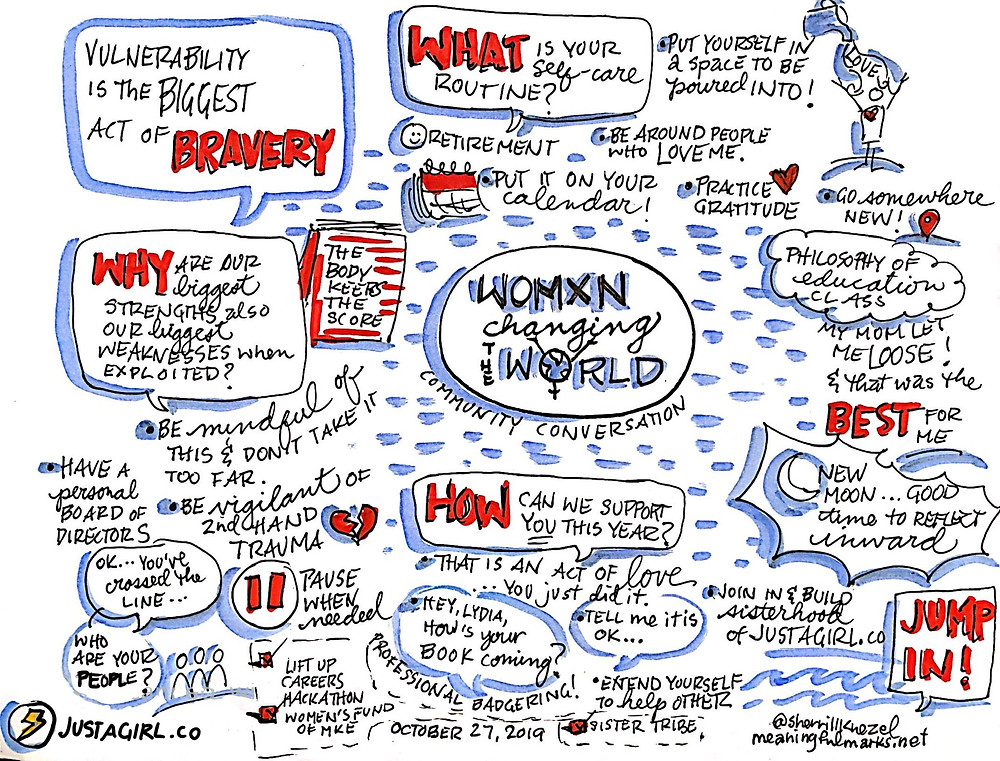 VULNERABILITY
IS THE BIGGEST
ACT OF BRAVERY
WHAT IS YOUR
self-care
ROUTINE?
PUT YOURSELF IN
a space TO BE
poured INTO!
LOVE
RETIREMENT
BE AROUND PEOPLE
WHO LOVE ME.
PUT IT ON YOUR
calendar!
PRACTICE
GRATITUDE
GO somewhere
NEW!
WHY ARE OUR
biggest
STRENGTHS also
OUR biggest
WEAKNESSES when
EXPLOITED?
THE
BODY
KEEPS
THE
SCORE
WOMXN
changing
THE
WORLD
COMMUNITY CONVERSATION
PHILOSOPHY OF
education
CLASS
MY MOM LET
ME LOOSE!
& that was the
BEST FOR
ME
BE mindful of
THIS & DON'T TAKE IT
TOO FAR.
HAVE A
personal
BOARD OF
DIRECTORS
BE vigilant OF
2nd HAND
TRAUMA
NEW
MOON... GOOD
time to REFLECT
inward
HOW CAN WE SUPPORT
YOU THIS YEAR?
THAT IS AN ACT OF love
... You just did it.
OK... YOU'VE
crossed the
LINE...
WHO
ARE YOUR
PEOPLE?
PAUSE
WHEN
needed
HEY, LYDIA,
HOW'S your
BOOK coming?
TELL me it is
OK...
PROFESSIONAL BADGERING!
JOIN IN & BUILD
sisterhood
of JUSTAGIRL.CO
JUMP
IN!
LIFT UP
CAREERS
HACKATHON
WOMEN'S FUND
OF MKE
EXTEND YOURSELF
to help OTHER
SISTER TRIBE.
JUSTAGIRL.CO
OCTOBER 27, 2019
@sherrillknezel
meaningfulmarks.net